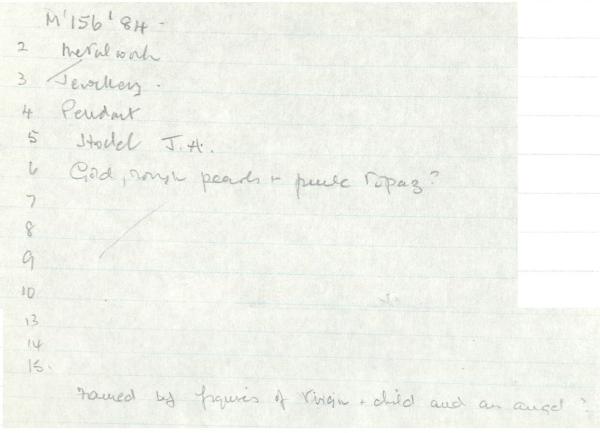 M'156'84 -
2 Metalwork
3 Jewellery.
4 Pendant
5 Hodel J.A.
6 Gold, rough pearls + pink topaz?
7
8
9
10
13
14
15.
Formed by figures of Virgin + child and an angel?